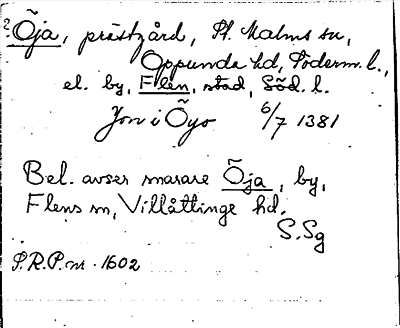 ? Öja, prästgård, St. Malms sn,
Oppunda hd, Söderm. l.,
el. by, Flen, stad, Söd. l.
Jon i Öyo 6/7 1381
Bel. avser snarare Öja, by,
Flens sn, Villåttinge hd.
S.Sg
S.R.P. nr 1602